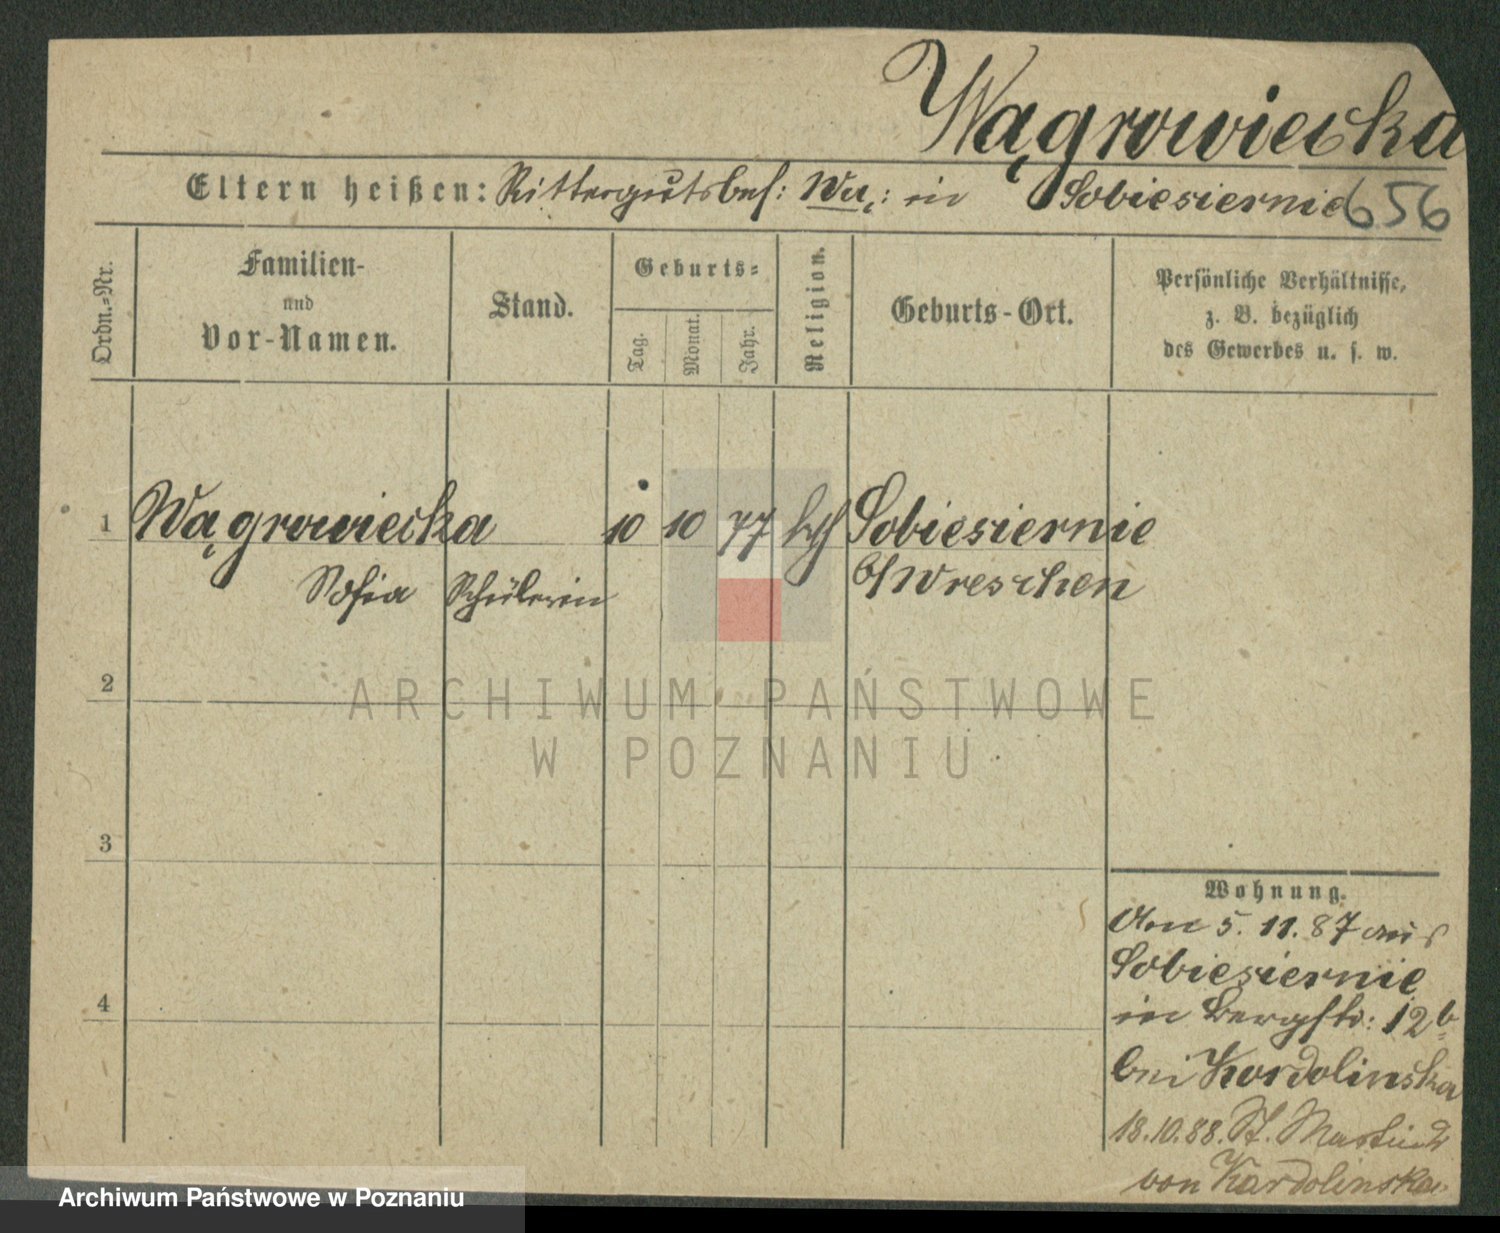 Wągrowiecka
Eltern heißen: Rittergutsbes: Wą: in Sobiesiernie 656
Ordn.-Nr.
Familien-
und
Vor-Namen.
Stand.
Geburts-
Tag.
Monat.
Jahr.
Religion.
Geburts-Ort.
Persönliche Verhältnisse,
z. B. bezüglich
des Gewerbes u. s. w.
1 Wągrowiecka 10 10 77 kth Sobiesiernie
Sofia Schülerin b/Wreschen
2
ARCHIWUM PAŃSTWOWE
W POZNANIU
3
4
Wohnung.
5. 11. 87 aus
Sobiesiernie
in Bergstr: 12b
bei Kordolinska
18.10.88. St. Martin
von Kardolinska
Archiwum Państwowe w Poznaniu